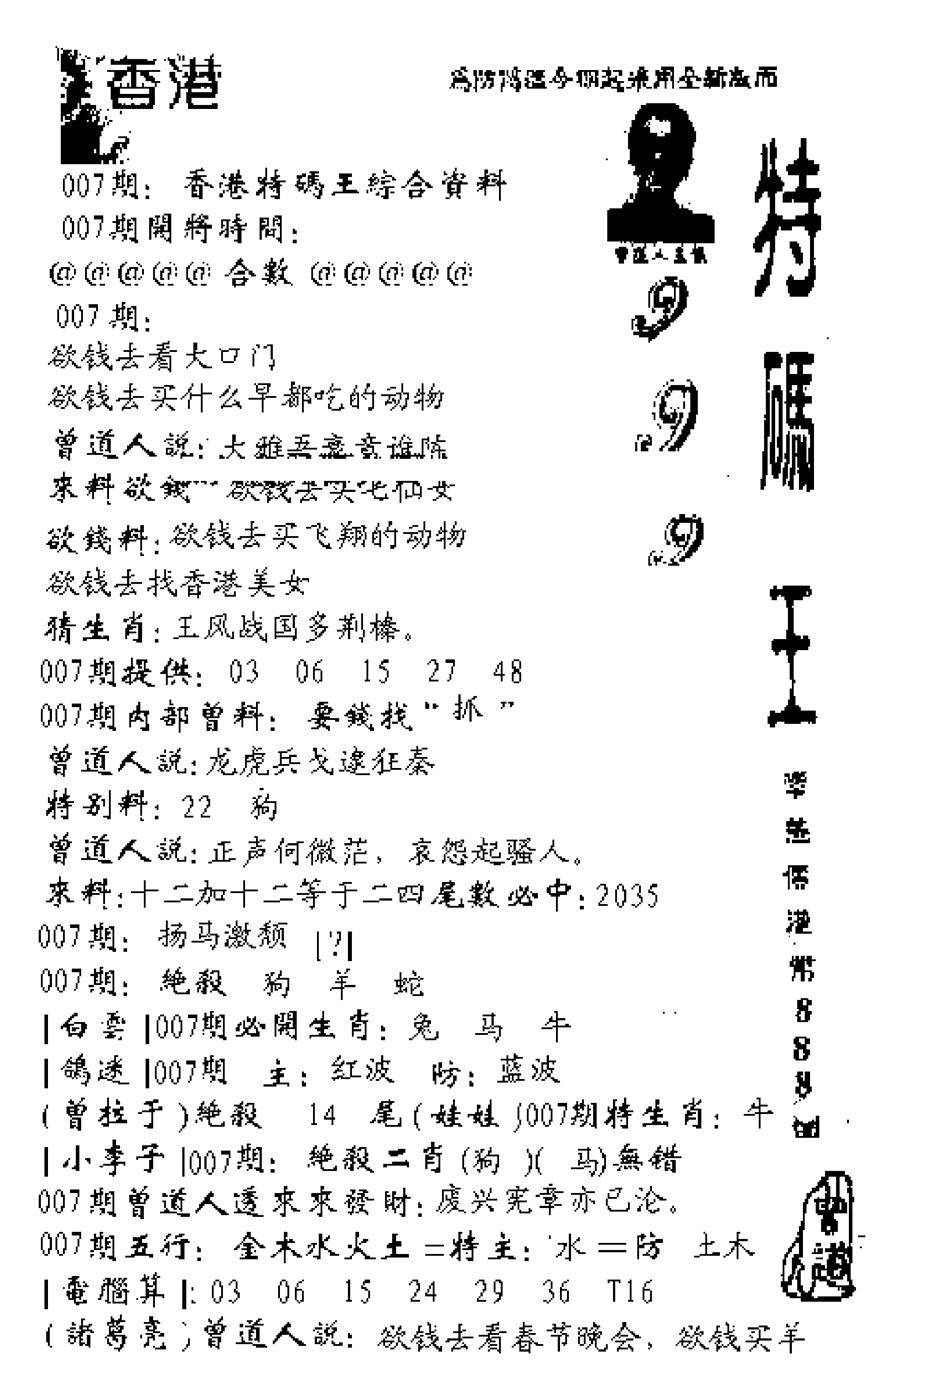 香港
為防
007期：香港特碼王綜合資料
007期開將時間：
@@@@@合數@@@@@
007期：
欲钱去看大口门
欲钱去买什么早都吃的动物
曾道人説：大雅吾意竟谁陈
來料欲錢 欲钱去买七仙女
欲錢料：欲钱去买飞翔的动物
欲钱去找香港美女
猜生肖：王风战国多荆榛。
007期提供：03 06 15 27 48
007期内部曾料：要錢找“抓”
曾道人説：龙虎兵戈逮狂秦
特别料：22 狗
曾道人説：正声何微茫，哀怨起骚人。
來料：十二加十二等于二四尾數必中：2035
007期：扬马激颓 [?]
007期：絶殺 狗 羊 蛇
|白雲|007期必開生肖：兔 马 牛
|鴿迷|007期 主：红波 防：蓝波
(曾拉于)絶殺 14 尾(娃娃)007期特生肖：牛
|小李子|007期：絶殺二肖(狗 )( 马)無错
007期曾道人透來來發財：废兴宪章亦已沦。
007期五行：金木水火土=特主：水=防 土木
|電腦算|：03 06 15 24 29 36 T16
(諸葛亮)曾道人説：欲钱去看春节晚会，欲钱买羊
曾道人
9
9
9
特
碼
王
港
幣
8
8
8
曾道